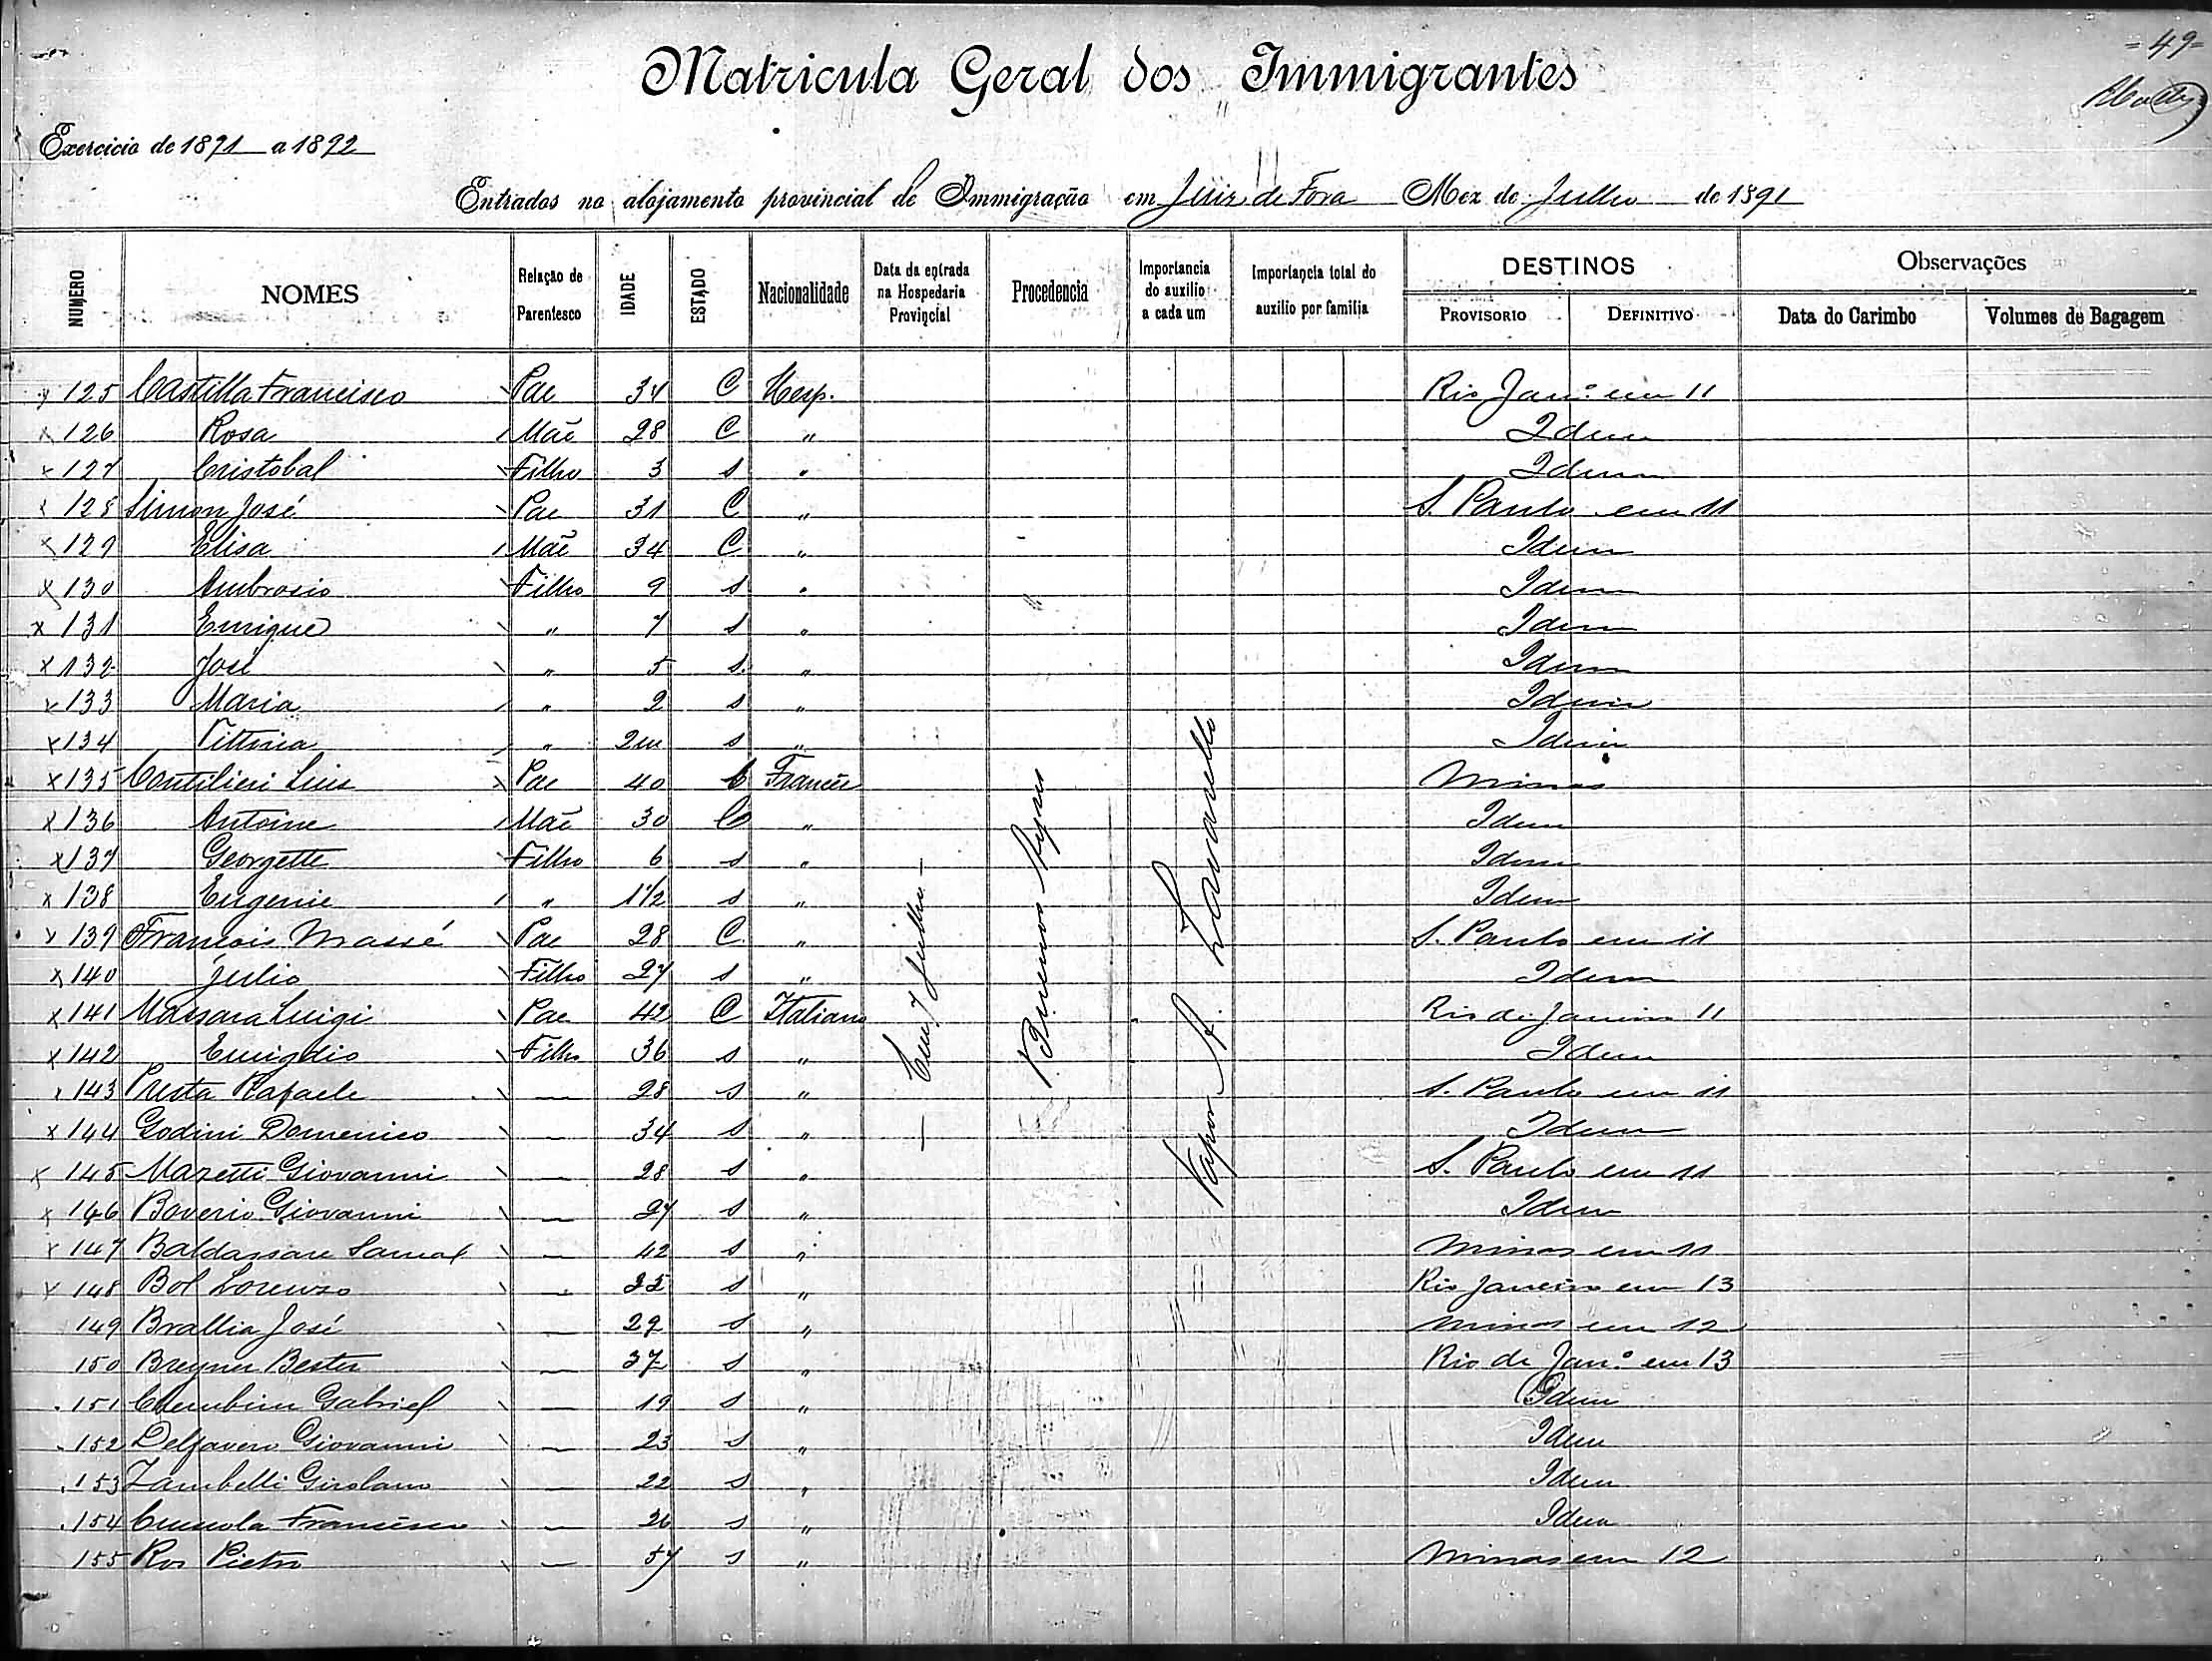 = 49 =
Matricula Geral dos Immigrantes
Exercicio de 1891 a 1892
Entrados no alojamento provincial de Immigração em Juiz de Fora Mez de Julho de 1891
NUMERO NOMES Relação de Parentesco IDADE ESTADO Nacionalidade Data da entrada na Hospedaria Provincial Procedencia Importancia do auxilio a cada um Importancia total do auxilio por familia DESTINOS Observações
PROVISORIO DEFINITIVO Data do Carimbo Volumes de Bagagem
x 125 Castilla Francisco Pae 34 C Hesp. Rio Jan.º em 11
x 126 Rosa Mãe 28 C " Idem
x 127 Cristobal Filho 3 s " Idem
x 128 Simon José Pae 31 C " S. Paulo em 11
x 129 Elisa Mãe 34 C " Idem
x 130 Ambrosio Filho 9 s " Idem
x 131 Enrique " 7 s " Idem
x 132 José " 5 s. " Idem
x 133 Maria " 2 s " Idem
x 134 Vittoria " 2m s " Idem
x 135 Luis Pae 40 C Francês Minas
x 136 Antoine Mãe 30 C " Idem
x 137 Georgette Filho 6 s " Idem
x 138 Eugenie " 1 1/2 s " Idem
x 139 François Massé Pae 28 C. " S. Paulo em 11
x 140 Julio Filho 27 s " Idem
x 141 Massara Luigi Pae 42 C Italiano Rio de Janeiro 11
x 142 Emigdio Filho 36 s " Idem
x 143 Presta Rafaele — 28 s " S. Paulo em 11
x 144 Godini Domenico — 34 s " Idem
x 145 Mazetti Giovanni — 28 s " S. Paulo em 11
x 146 Boverio Giovanni — 27 s " Idem
x 147 Baldassare — 42 s " Minas em 11
x 148 Bol Lorenzo — 25 s " Rio Janeiro em 13
149 Brallia José — 29 s " Minas em 12
150 Breyner Bester — 37 s " Rio de Jan.º em 13
151 Cherubim Gabriel — 19 s " Idem
152 Delfavero Giovanni — 23 s " Idem
153 Zambelli Girolamo — 22 s " Idem
154 Francisco — 26 s " Idem
155 Ros Pietro — 57 s " Minas em 12
— Em 7 Julho —
Buenos Ayres
Vapor A. Lavarello